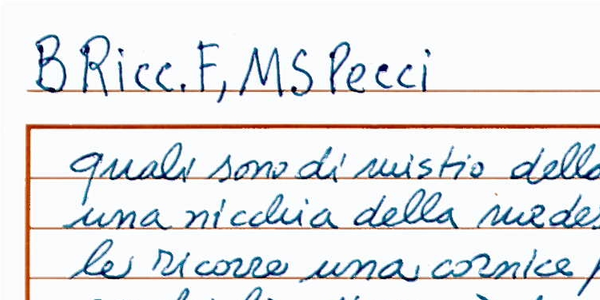 B Ricc. F, MS Pecci
quali sono di mistio della
una nicchia della medes
le ricorre una cornice p